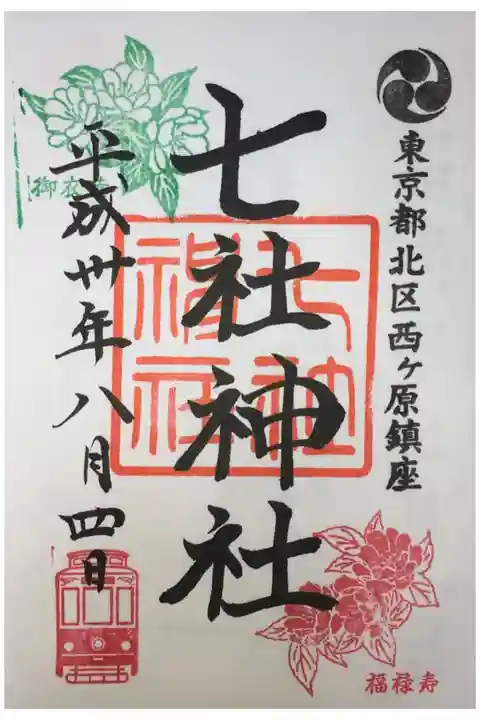 東京都北区西ヶ原鎮座
七社神社
七社
神社
平成卅年八月四日
御衣黄
福禄寿